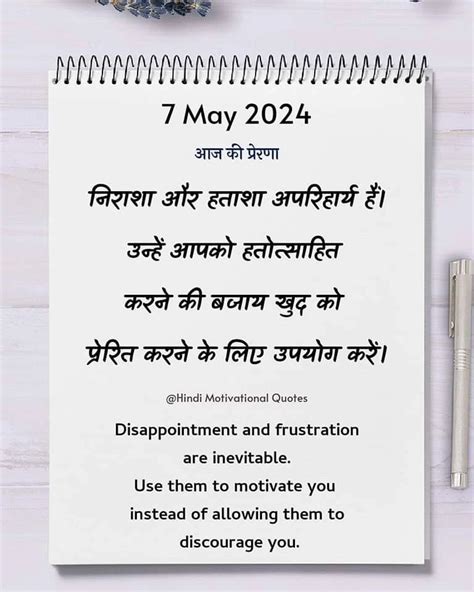 7 May 2024
आज की प्रेरणा
निराशा और हताशा अपरिहार्य हैं।
उन्हें आपको हतोत्साहित
करने की बजाय खुद को
प्रेरित करने के लिए उपयोग करें।
@Hindi Motivational Quotes
Disappointment and frustration
are inevitable.
Use them to motivate you
instead of allowing them to
discourage you.